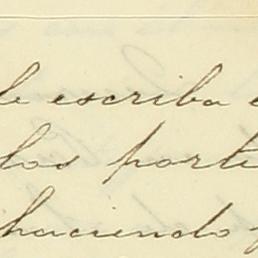 le escriba
los porti
haciendo